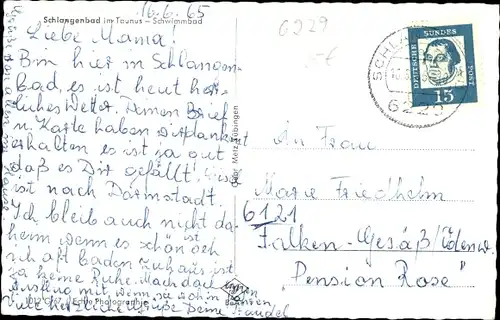 16.6.65
Schlangenbad im Taunus – Schwimmbad
Liebe Mama!
Bin hier in Schlangen-
bad, es ist heut herr-
liches Wetter. Deinen Brief
u. Karte haben wir dankend
erhalten es ist ja gut
daß es Dir gefällt.
ist nach Darmstadt.
Ich bleib auch nicht da-
heim wenn es schön ist
ich oft baden zuhaus ist
ja keine Ruhe. Mach doch
Ausflug mit, wenn so schön
herzliche Grüße Deine
1012 Echte Photographie
Gebr. Metz, Tübingen
6229
DEUTSCHE BUNDESPOST
15
6229
An Frau
Marie Friedhelm
6121
Falken-Gesäß/Odenw.
"Pension Rose"